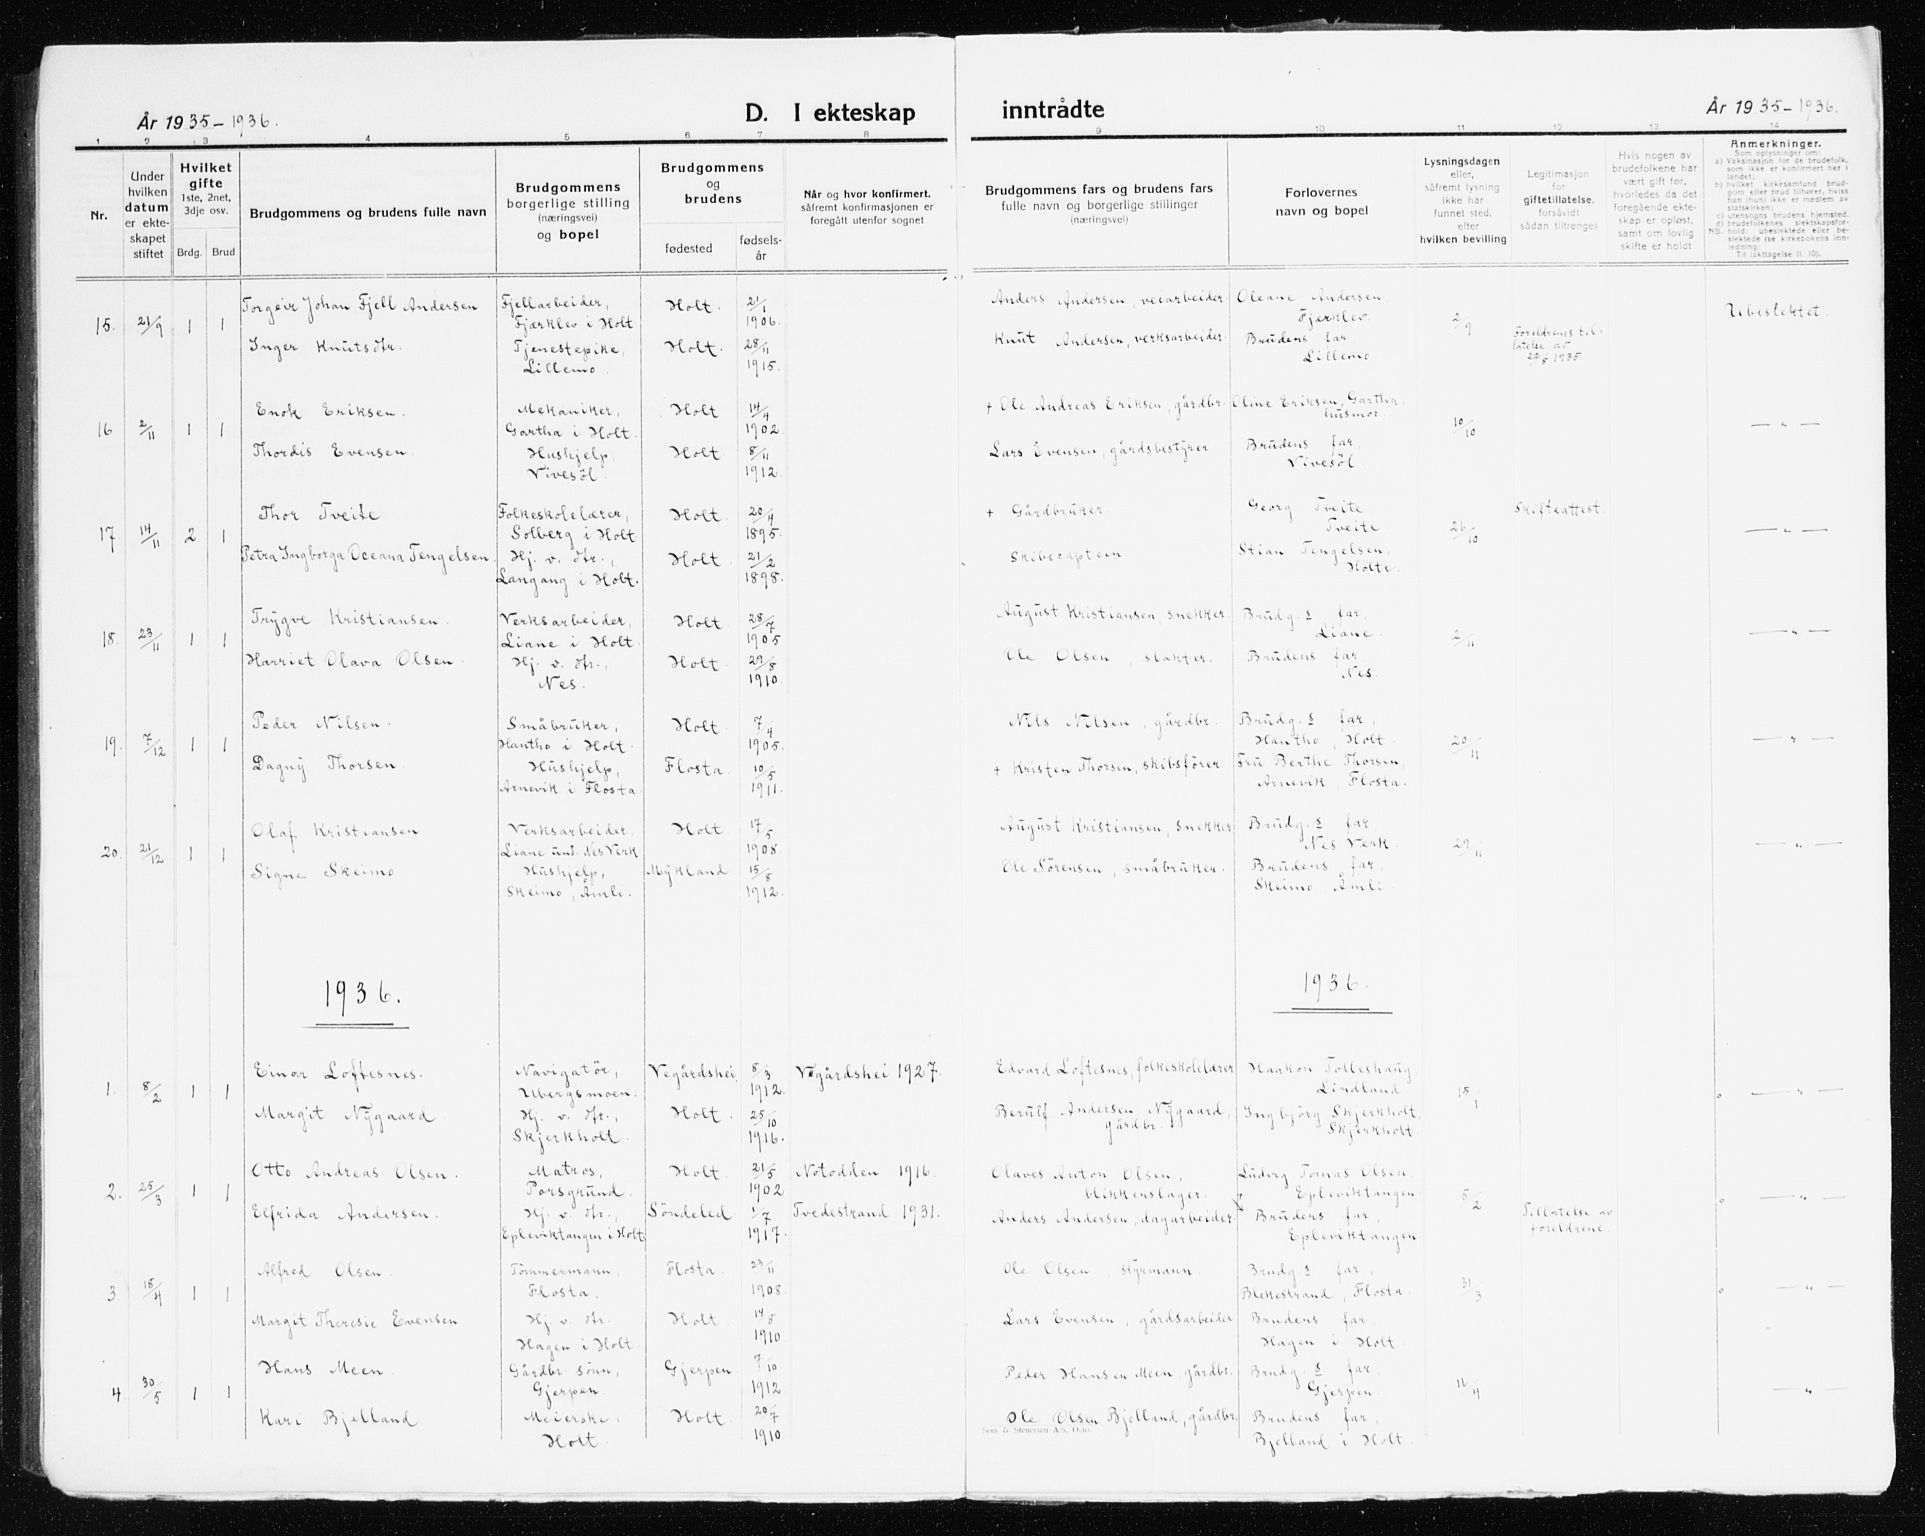 År 1935-1936.
D. I ekteskap
inntrådte
År 1935-1936.
1 2 3 4 5 6 7 8 9 10 11 12 13 14
Nr.
Under hvilken datum er ekte-skapet stiftet
Hvilket gifte 1ste, 2net, 3dje osv.
Brdg. Brud
Brudgommens og brudens fulle navn
Brudgommens borgerlige stilling (næringsvei) og bopel
Brudgommens og brudens
fødested
fødsels-år
Når og hvor konfirmert, såfremt konfirmasjonen er foregått utenfor sognet
Brudgommens fars og brudens fars fulle navn og borgerlige stillinger (næringsvei)
Forlovernes navn og bopel
Lysningsdagen eller, såfremt lysning ikke har funnet sted, efter hvilken bevilling
Legitimasjon for giftetillatelse, forsåvidt sådan tiltrenges
Hvis nogen av brudefolkene har vært gift før, hvorledes da det foregående ekte-skap er opløst, samt om lovlig skifte er holdt
Anmerkninger.
Som oplysninger om:
a) Vaksinasjon for de brudefolk, som ikke er konfirmert her i landet;
b) hvilket kirkesamfund brud-gom eller brud tilhører, hviss han (hun) ikke er medlem av statskirken;
c) utensogns brudens hjemsted.
d) brudefolkenes slektskapsfor-hold: ubeslektede eller be-slektede (se kirkebokens inn-ledning:
NB.
Til iakttagelse II. 10).
15. 21/9 1 1 Torgeir Johan Fjell Andersen Fjellarbeider, Fjærklev i Holt Holt. 21/1 1906. Anders Andersen, veiarbeider. Oleane Andersen, Fjærklev. 2/9 Ubeslektet.
Inger Knutsdtr. Tjenestepike, Lillemo. Holt. 28/11 1915. Knut Andersen, verksarbeider. Brudens far Lillemo Foreldrenes til-latelse av 29/8 1935
16 2/11 1 1 Enok Eriksen. Mekaniker, Gartha i Holt. Holt 14/4 1902 + Ole Andreas Eriksen, gårdbr. Oline Eriksen, Gartha. husmor. 10/10 — " —
Thordis Evensen. Hushjelp, Vivesøl. Holt 8/11 1912. Lars Evensen, gårdsbestyrer Brudens far, Vivesøl.
17 14/11 2 1 Thor Tveite Folkeskolelærer, Solberg i Holt Holt. 20/4 1895. + Gårdbruker. Georg Tveite Tveite 26/10 Skifteattest. — " —
Petra Ingborga Oceana Tengelsen. Hj. v. dtr., Langang i Holt. Holt. 21/2 1898. Skibscaptein. Stian Tengelsen, Holte.
18. 23/11 1 1 Trygve Kristiansen. Verksarbeider, Liane i Holt. Holt. 28/7 1905 August Kristiansen, snekker Brudg.s far, Liane. 2/11 — " —
Harriet Olava Olsen. Hj. v. dtr., Nes. Holt. 29/8 1910. Ole Olsen, slakter. Brudens far, Nes.
19. 7/12 1 1 Peder Nilsen. Småbruker, Hantho i Holt. Holt. 7/4 1905. Nils Nilsen, gårdbr. Brudg.s far, Hantho, Holt. 20/11 — " —
Dagny Thorsen. Hushjelp, Arnevik i Flosta. Flosta. 10/5 1911. + Kristen Thorsen, skibsfører Fru Berthe Thorsen, Arnevik, Flosta.
20. 21/12 1 1 Olaf Kristiansen Verksarbeider. Liane und. Nes Verk Holt. 17/5 1908. August Kristiansen, snekker Brudg.s far, Nes Verk. 29/11 — " —
Signe Skeimo Hushjelp, Skeimo, Åmli. Mykland 15/8 1912. Ole Sørensen, småbruker. Brudens far, Skeimo, Åmli.
1936.
1936.
1. 8/2 1 1 Einar Loftesnes. Navigatør, Ubergsmoen. Vegårdshei 5/3 1912. Vegårdshei 1927. Edvard Loftesnes, folkeskolelærer Haakon Lindland. 15/1 — " —
Margit Nygaard. Hj. v. dtr., Skjerkholt. Holt. 25/10 1916. Berulf Andersen Nygaard, gårdbr. Ingbjörg Skjerkholt, Skjerkholt.
2. 25/3 1 1 Otto Andreas Olsen. Matros, Porsgrund. Holt. 21/5 1902 Notodden 1916. Olaves Anton Olsen, blikkenslager. Ludvig Tomas Olsen. Epleviktangen 5/2 — " —
Elfrida Andersen. Hj. v. dtr., Epleviktangen i Holt. Söndeled 1/7 1917. Tvedestrand 1931. Anders Andersen, dagarbeider. Brudens far, Epleviktangen Tillatelse av foreldrene.
3 15/4 1 1 Alfred Olsen. Tömmermann, Flosta. Flosta. 23/11 1908. Ole Olsen, styrmann. Brudg.s far, Blekestrand, Flosta. 31/3 — " —
Margit Theresie Evensen Hj v. dtr. Hagen i Holt. Holt. 14/5 1910. Lars Evensen, gårdsarbeider Brudens far, Hagen i Holt.
4. 30/5 1 1 Hans Meen. Gårdbr. sønn, Gjerpen. Gjerpen. 7/10 1912 Peder Hansen Meen, gårdbr. Brudg.s far, Gjerpen. 16/4 — " —
Kari Bjelland Meierske, Holt. Holt. 20/7 1910 Ole Olsen Bjelland, gårdbr. Brudens far, Bjelland i Holt.
Sem & Stenersen A/S, Oslo.